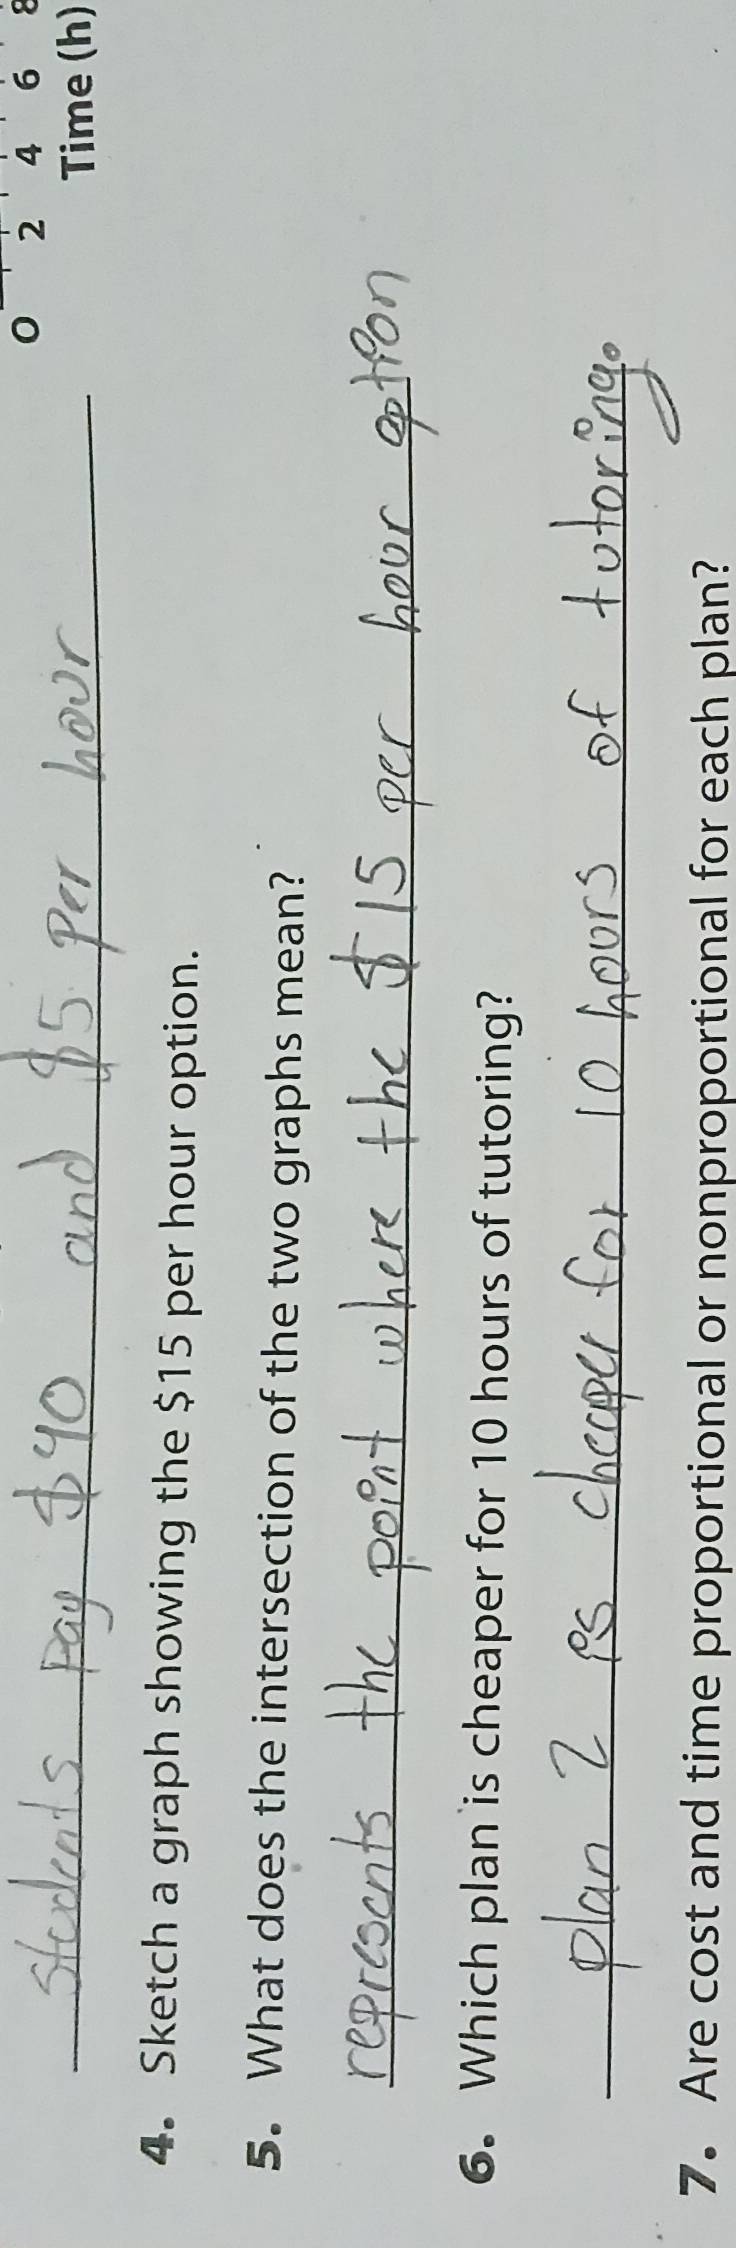 O 2 4 6 8
Time (h)
students pay $40 and $5 per hour
4. Sketch a graph showing the $15 per hour option.
5. What does the intersection of the two graphs mean?
represents the point where the $15 per hour option
6. Which plan is cheaper for 10 hours of tutoring?
plan 2 is cheaper for 10 hours of tutoring.
7. Are cost and time proportional or nonproportional for each plan?